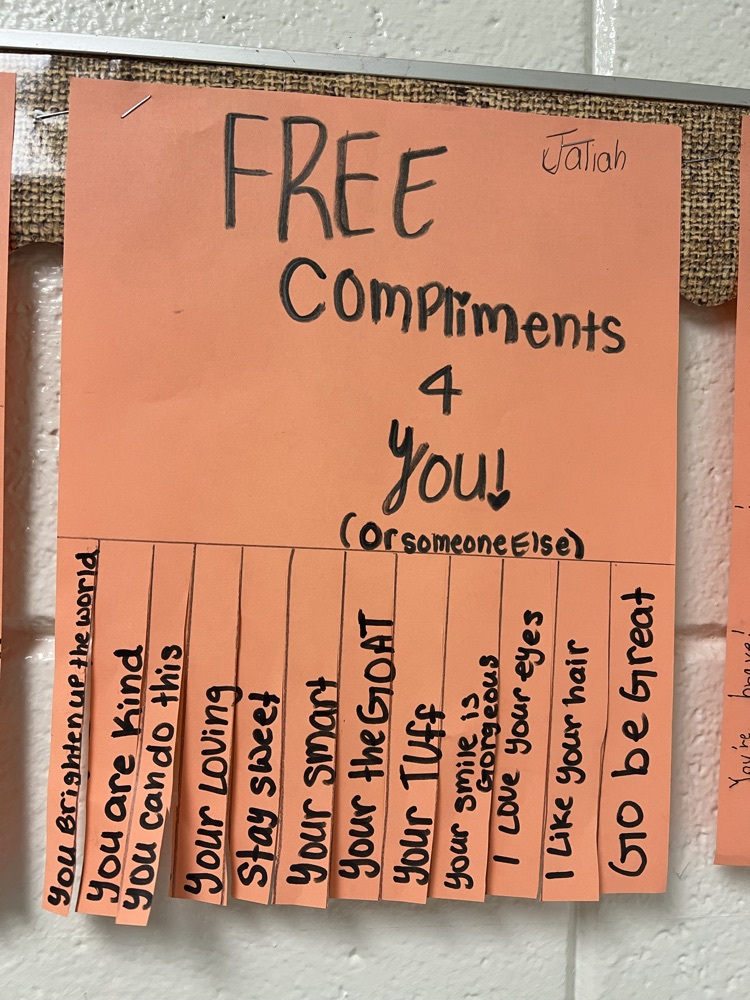 FREE
Jaliah
Compliments
4
You!
(Or someone Else)
You Brighten up the world
You are Kind
You can do this
Your Loving
Stay sweet
Your smart
Your the GOAT
Your Tuff
Your smile is
Gorgeous
I Love your eyes
I Like your hair
GO be Great
You're brave!